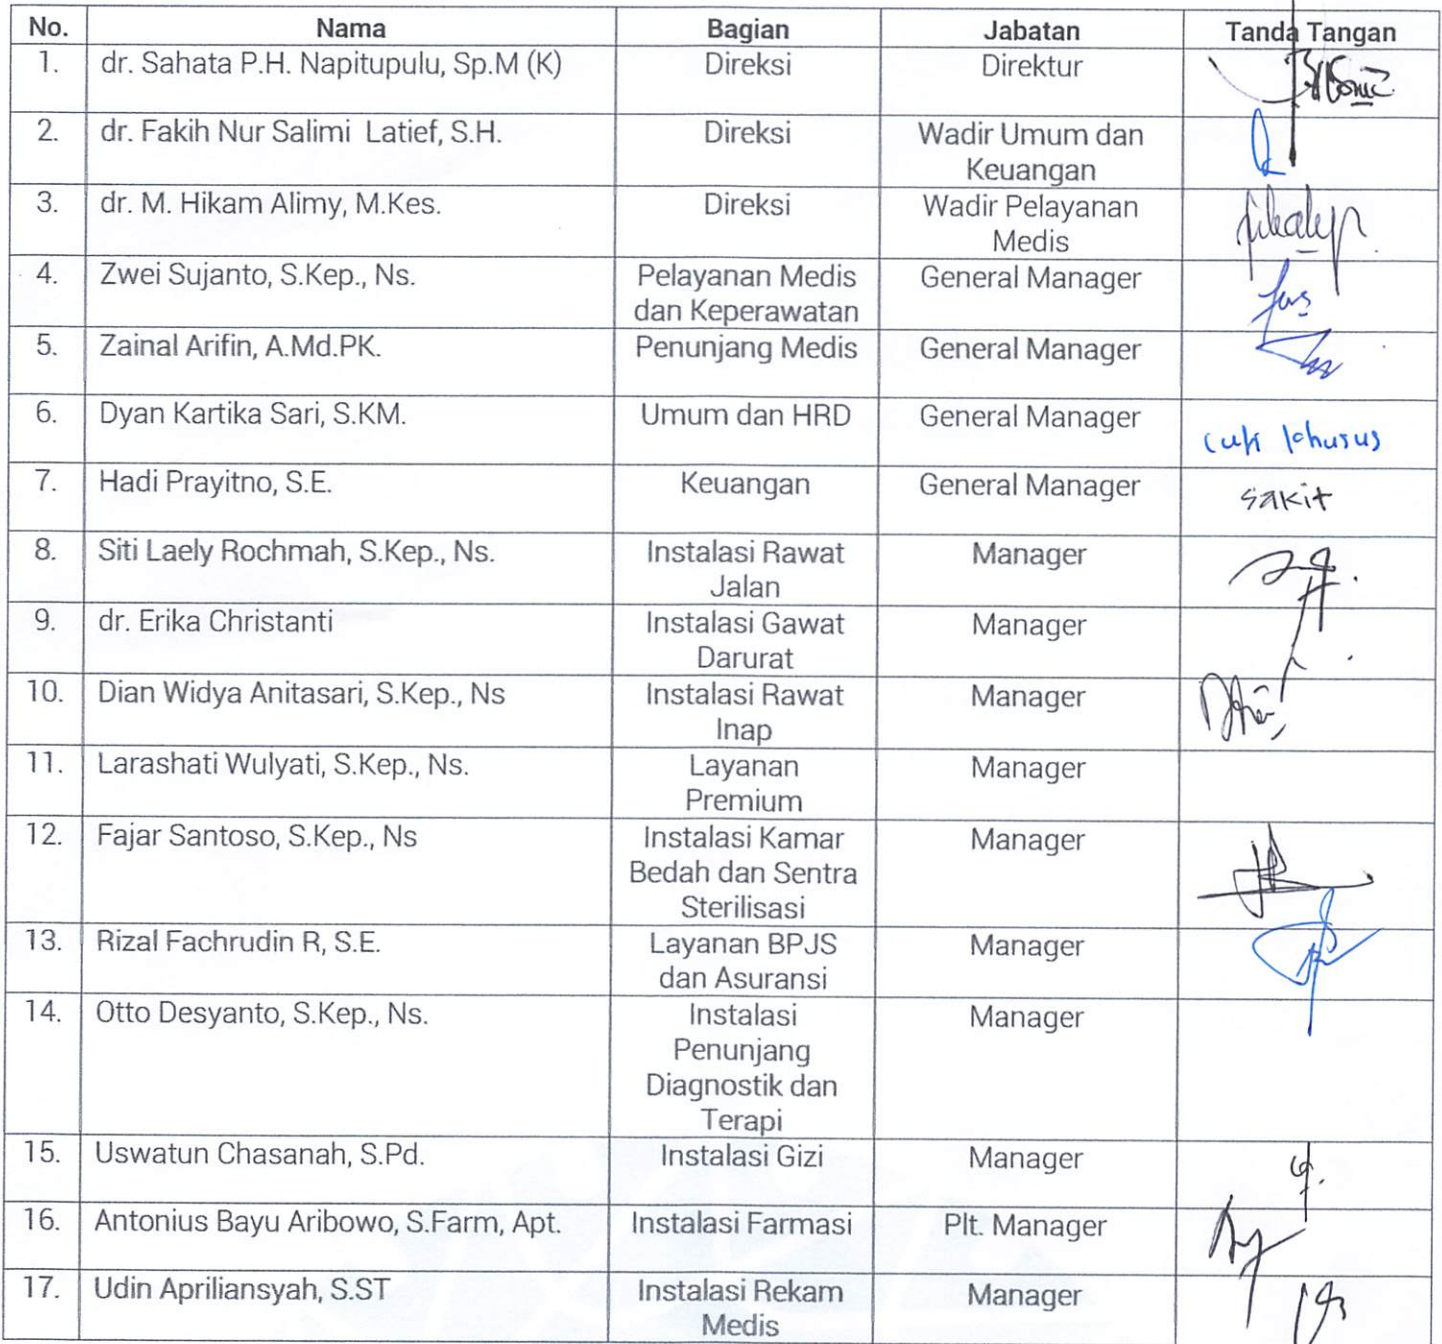 No. Nama Bagian Jabatan Tanda Tangan
1. dr. Sahata P.H. Napitupulu, Sp.M (K) Direksi Direktur
2. dr. Fakih Nur Salimi Latief, S.H. Direksi Wadir Umum dan
Keuangan
3. dr. M. Hikam Alimy, M.Kes. Direksi Wadir Pelayanan
Medis
4. Zwei Sujanto, S.Kep., Ns. Pelayanan Medis General Manager
dan Keperawatan
5. Zainal Arifin, A.Md.PK. Penunjang Medis General Manager
6. Dyan Kartika Sari, S.KM. Umum dan HRD General Manager
cuti khusus
7. Hadi Prayitno, S.E. Keuangan General Manager sakit
8. Siti Laely Rochmah, S.Kep., Ns. Instalasi Rawat Manager
Jalan
9. dr. Erika Christanti Instalasi Gawat Manager
Darurat
10. Dian Widya Anitasari, S.Kep., Ns Instalasi Rawat Manager
Inap
11. Larashati Wulyati, S.Kep., Ns. Layanan Manager
Premium
12. Fajar Santoso, S.Kep., Ns Instalasi Kamar Manager
Bedah dan Sentra
Sterilisasi
13. Rizal Fachrudin R, S.E. Layanan BPJS Manager
dan Asuransi
14. Otto Desyanto, S.Kep., Ns. Instalasi Manager
Penunjang
Diagnostik dan
Terapi
15. Uswatun Chasanah, S.Pd. Instalasi Gizi Manager
16. Antonius Bayu Aribowo, S.Farm, Apt. Instalasi Farmasi Plt. Manager
17. Udin Apriliansyah, S.ST Instalasi Rekam Manager
Medis